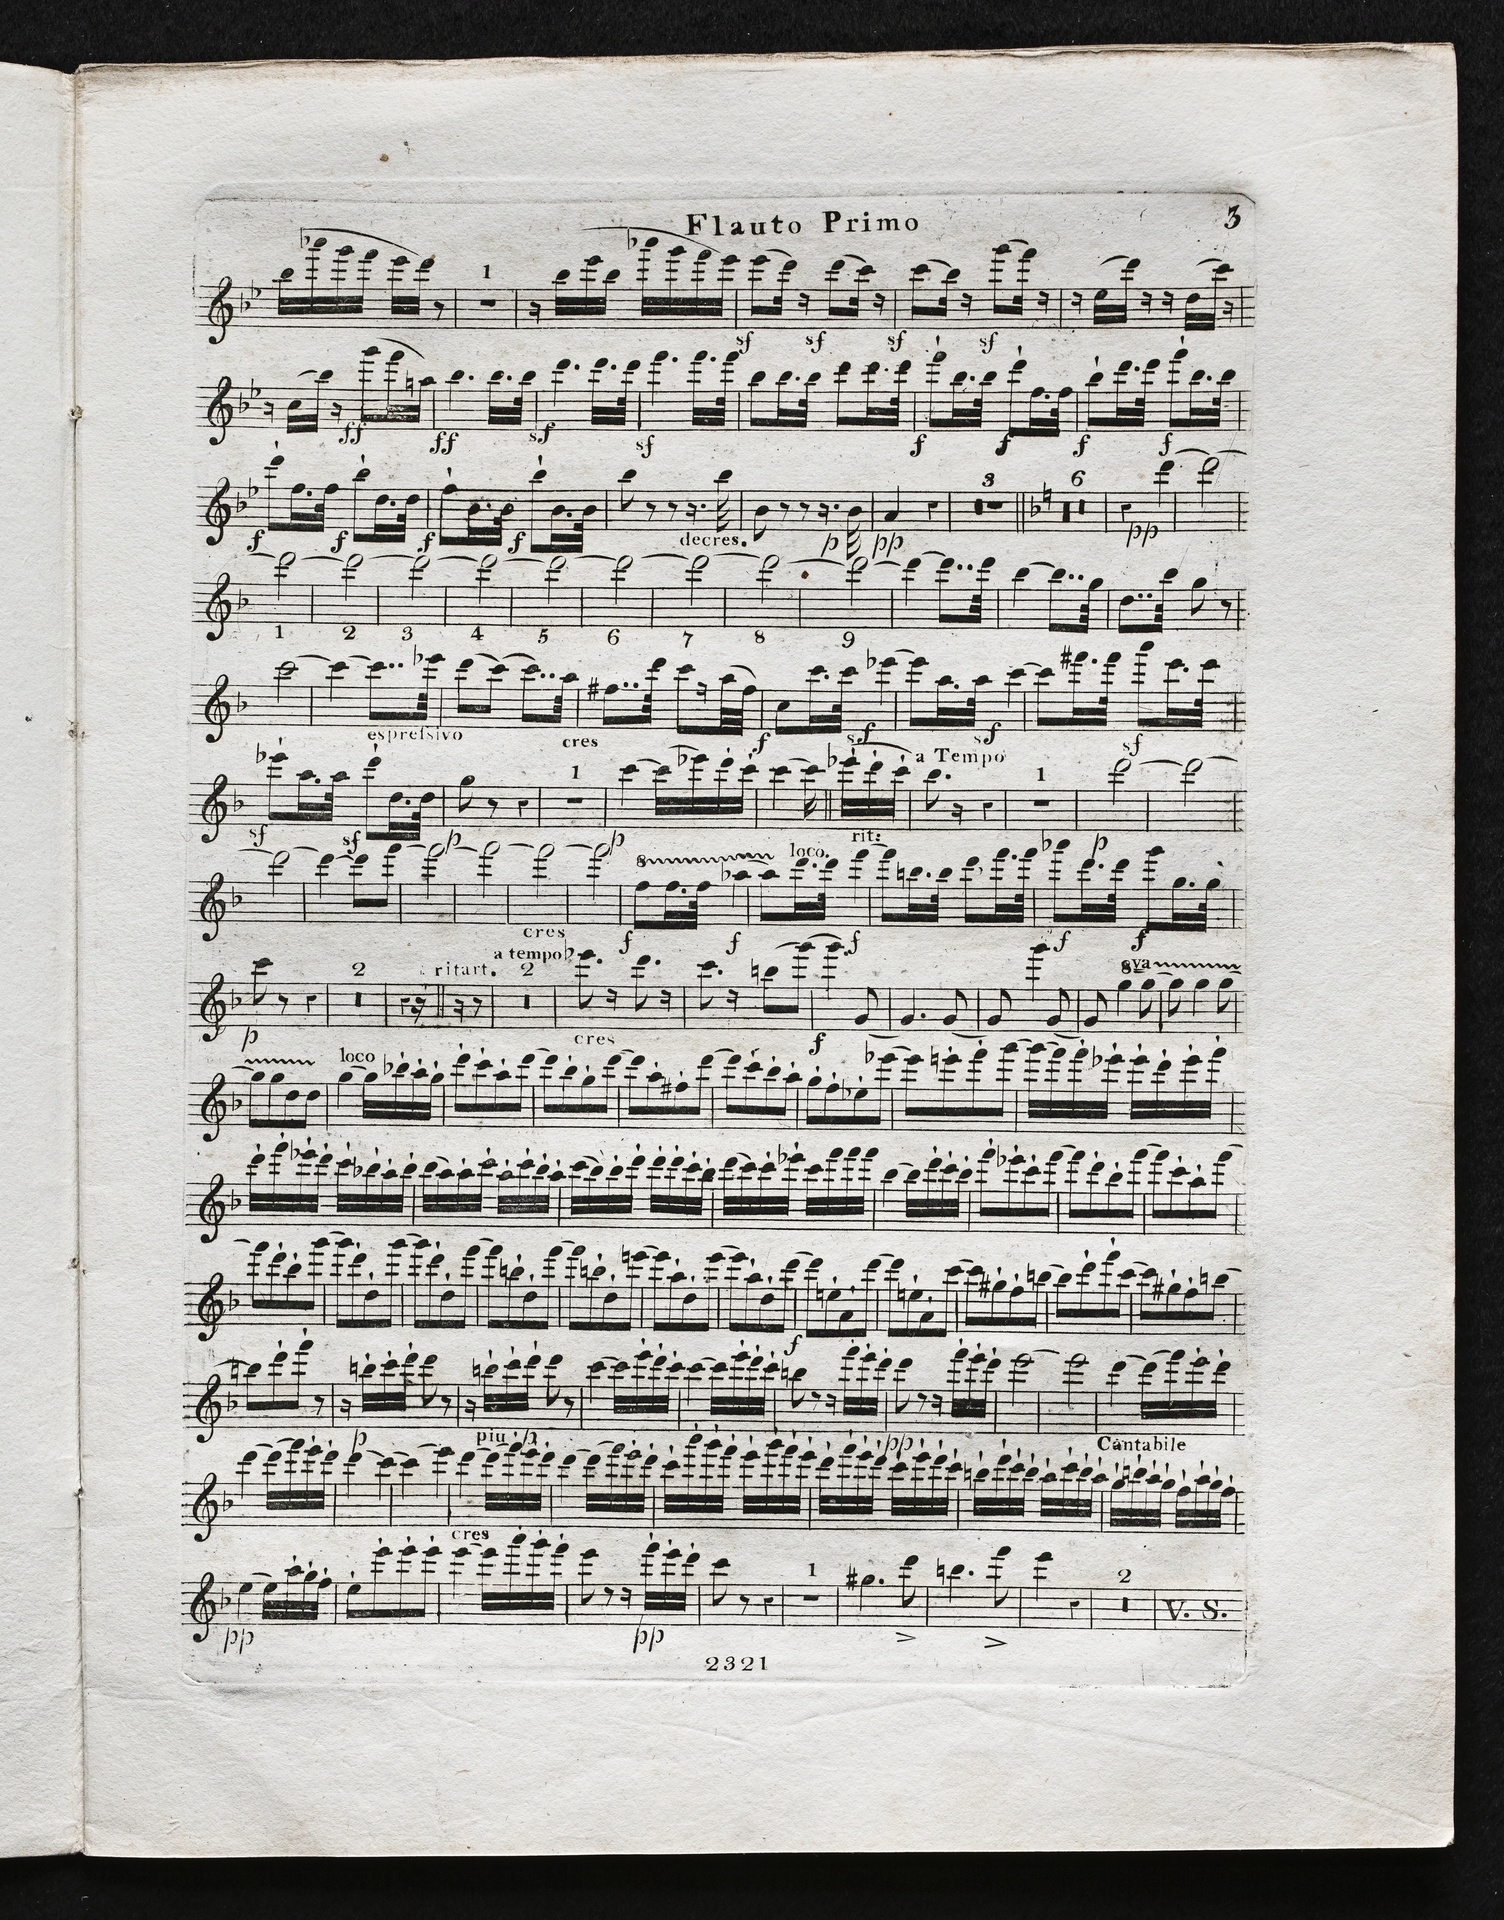 Flauto Primo
3
1
sf sf sf sf
ff ff sf sf f f f f
3 6
f f f f decres. p pp pp
1 2 3 4 5 6 7 8 9
espressivo cres f sf sf sf
a Tempo
1 1
sf sf p p
rit:
8 loco. p
cres f f f f f
a tempo
2 ritart. 2 8va
p cres f
loco
f
p piu p pp Cantabile
cres
1 2
V. S.
pp pp > >
2321